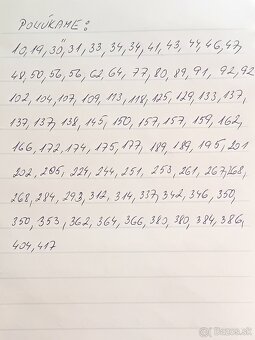 PONÚKAME:
10, 19, 30", 31, 33, 34, 34, 41, 43, 44, 46, 47,
48, 50, 56, 56, 62, 64, 77, 80, 89, 91, 92, 92
102, 104, 107, 109, 113, 118, 125, 129, 133, 137,
137, 137, 138, 145, 150, 157, 157, 159, 162,
166, 172, 174, 175, 177, 189, 189, 195, 201
202, 205, 224, 244, 251, 253, 261, 267, 268,
268, 284, 293, 312, 314, 337, 342, 346, 350,
350, 353, 362, 364, 366, 380, 380, 384, 386,
404, 417
bazos.sk